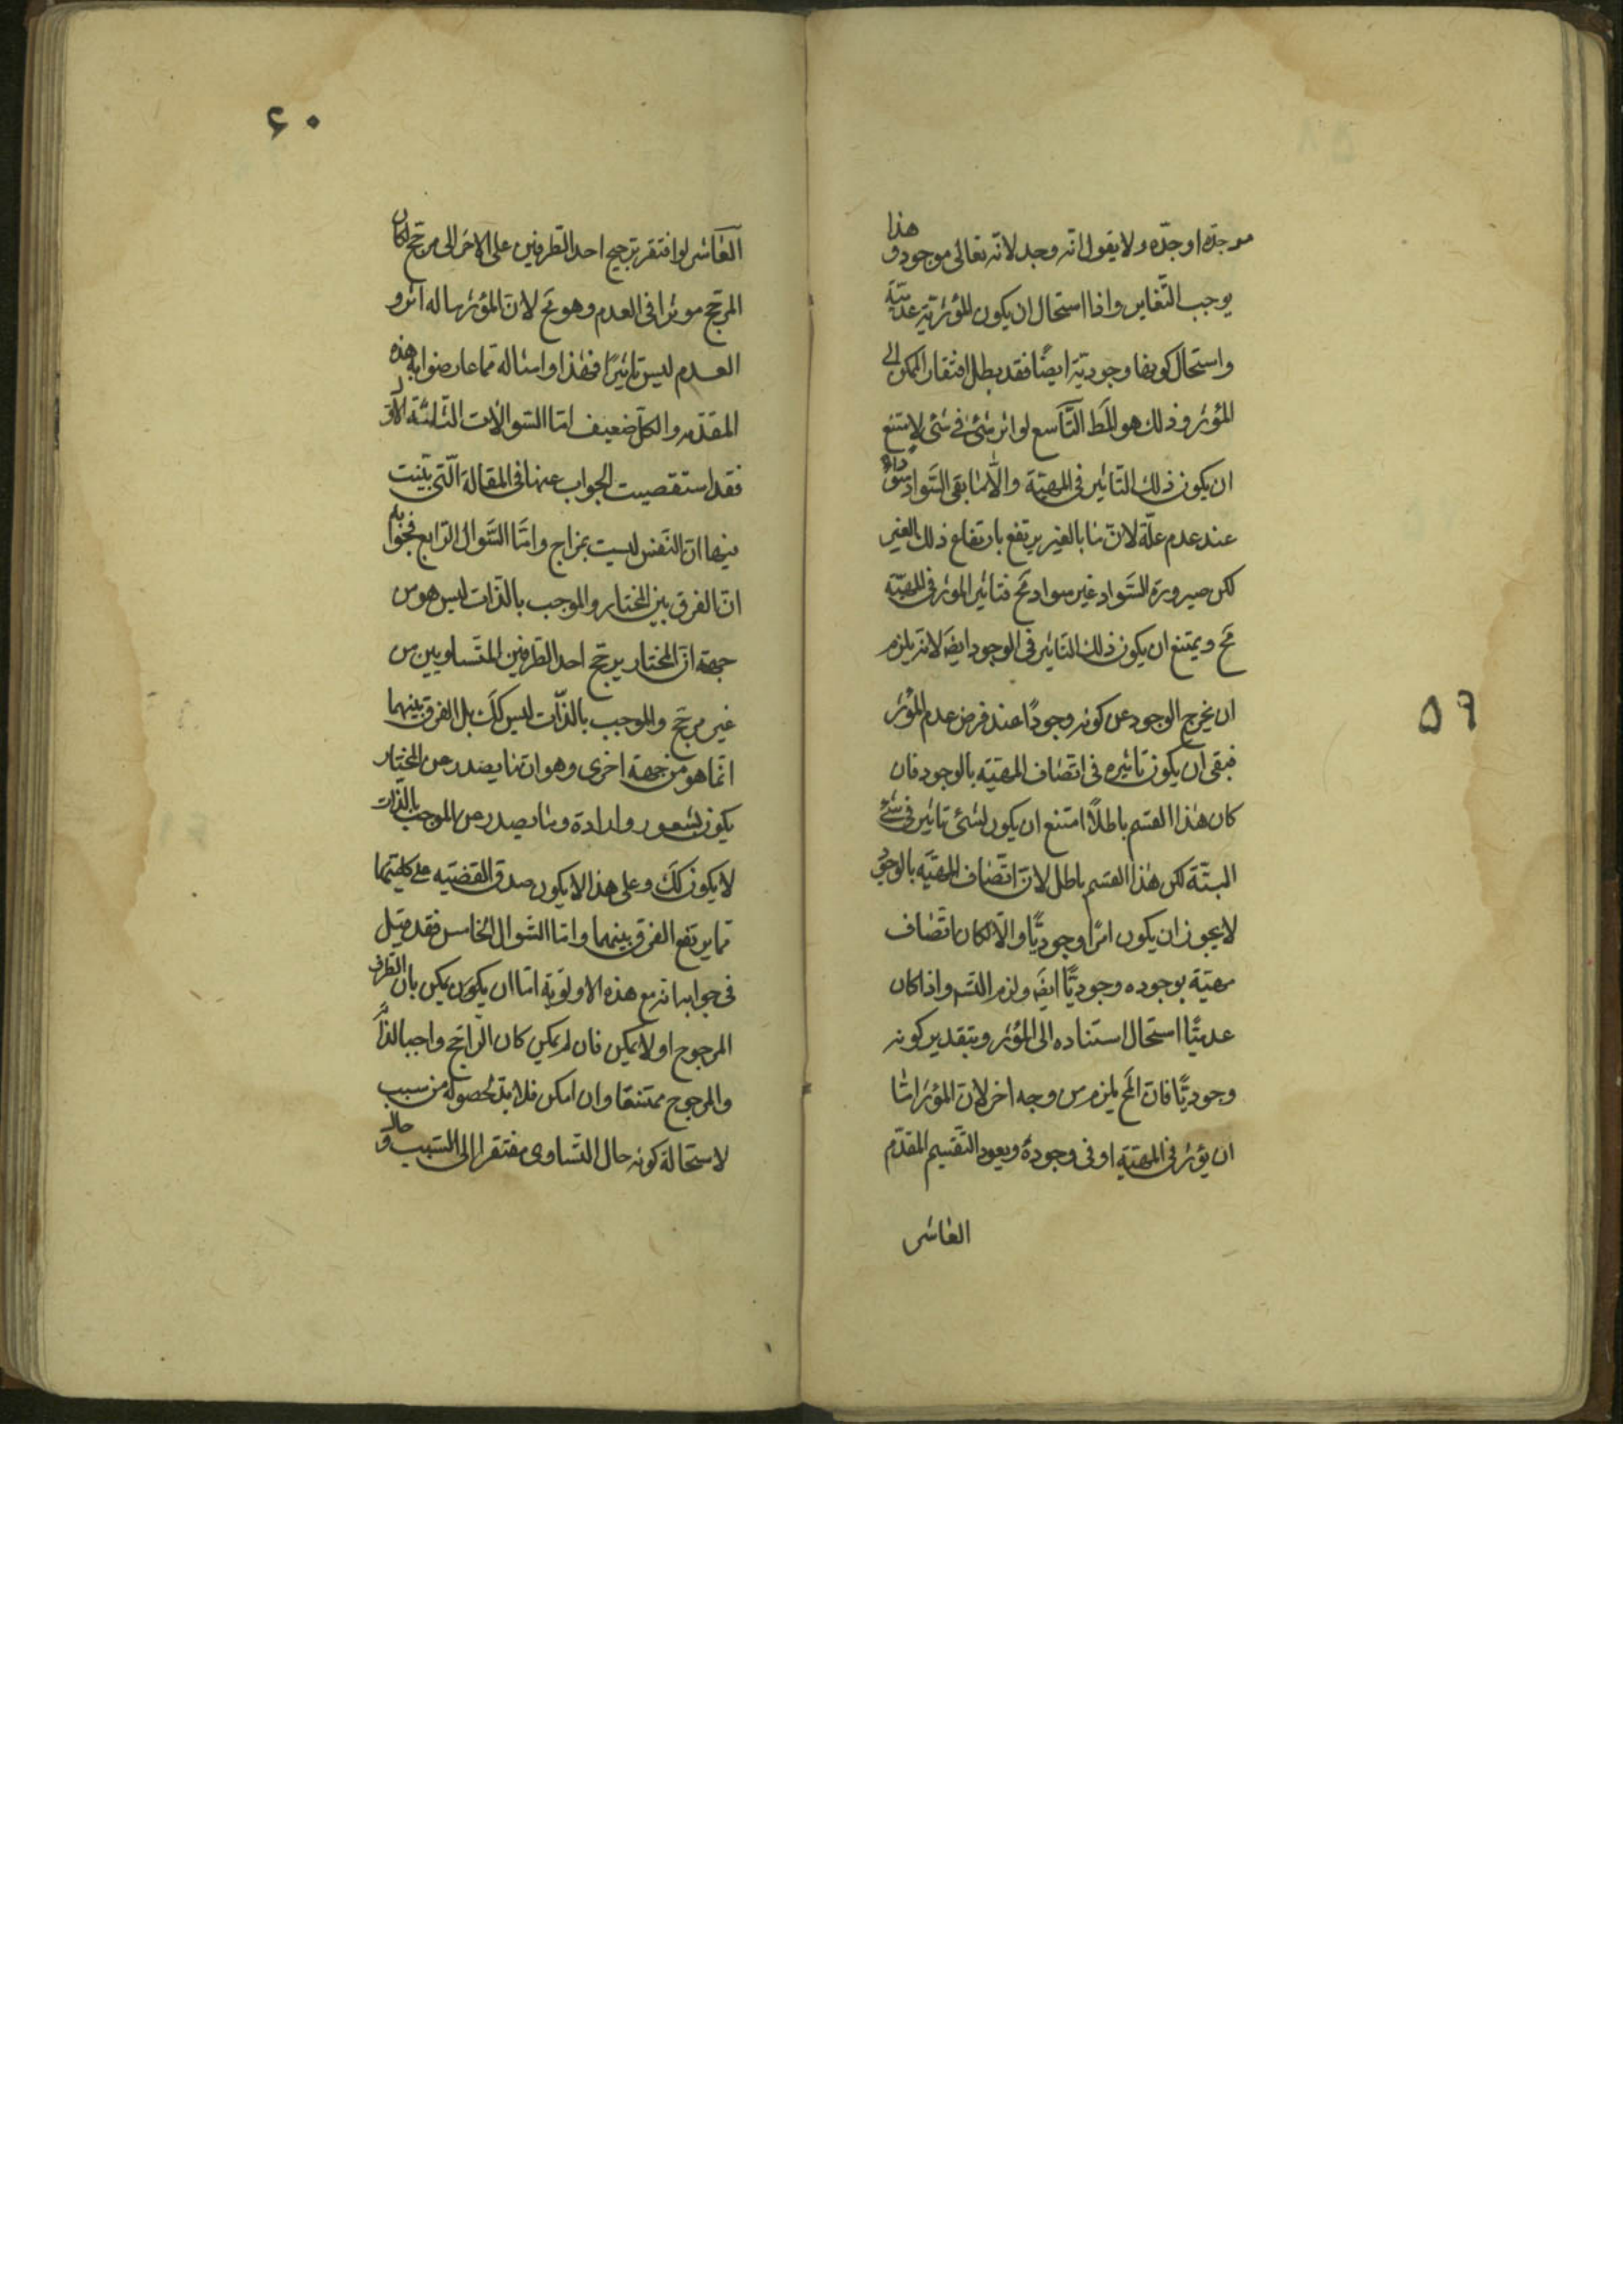 ۵۹
موجده اوجده ولا يقول انه وجد لانه تعالى موجود و هذا
يوجب التغاير واذا استحال ان يكون المؤثرية عدمية
واستحال كونها وجودية ايضًا فقد بطل افتقار الممكن الى
المؤثر وذلك هو المط التاسع لو اثر شئ فى شئ لامتنع
ان يكون ذلك التاثير فى المهية والا لما بقى السواد سوادا
عند عدم علة لان ما بالغير يرتفع بارتفاع ذلك الغير
لكن صيرورة السواد غير سواد مح فتاثير الموثر فى المهية
مح ويمتنع ان يكون ذلك التاثير فى الوجود ايض لانه يلزم
ان يخرج الوجود عن كونه وجودًا عند فرض عدم المؤثر
فبقى ان يكون تاثيره فى اتصاف المهية بالوجود فان
كان هذا القسم باطلًا امتنع ان يكون لشئ تاثير فى شئ
البتة لكن هذا القسم باطل لان اتصاف المهية بالوجود
لا يجوز ان يكون امرًا وجوديًا والا لكان اتصاف
مهية بوجوده وجوديًا ايض ولزم التسم واذا كان
عدميًا استحال استناده الى المؤثر وبتقدير كونه
وجوديًا فان المح يلزم من وجه اخر لان المؤثر اما
ان يؤثر فى المهية او فى وجوده ويعود التقسيم المقدم
العاشر
۶۰
العاشر لو افتقر ترجيح احد الطرفين على الاخر الى مرجح لكان
المرجح موثرا فى العدم وهو مح لان المؤثر ما له اثر و
العدم ليس تاثيرًا فهذا وامثاله مما عارضوا به هذه
المقدمه والكل ضعيف اما السوالات الثلثة الاول
فقد استقصيت الجواب عنها فى المقالة التى بينت
فيها ان النفس ليست بمزاج واما السوال الرابع فجوابه
ان الفرق بين المختار والموجب بالذات ليس هو من
جهة ان المختار يرجح احد الطرفين المتساويين من
غير مرجح والموجب بالذات ليس كك بل الفرق بينهما
انما هو من جهة اخرى وهو ان ما يصدر عن المختار
يكون بشعور وارادة وما يصدر عن الموجب بالذات
لا يكون كك وعلى هذا لا يكون صدق القضيه على كليتها
مما يرتفع الفرق بينهما واما السوال الخامس فقد قيل
فى جوابه انه مع هذه الاولوية اما ان يكون يمكن بان الطرف
المرجوح او لا يمكن فان لم يمكن كان الراجح واجبا لذاته
والمرجوح ممتنعا وان امكن فلا بد لحصوله من سبب
لاستحالة كونه حال التساوى مفتقرا الى السبب وحال